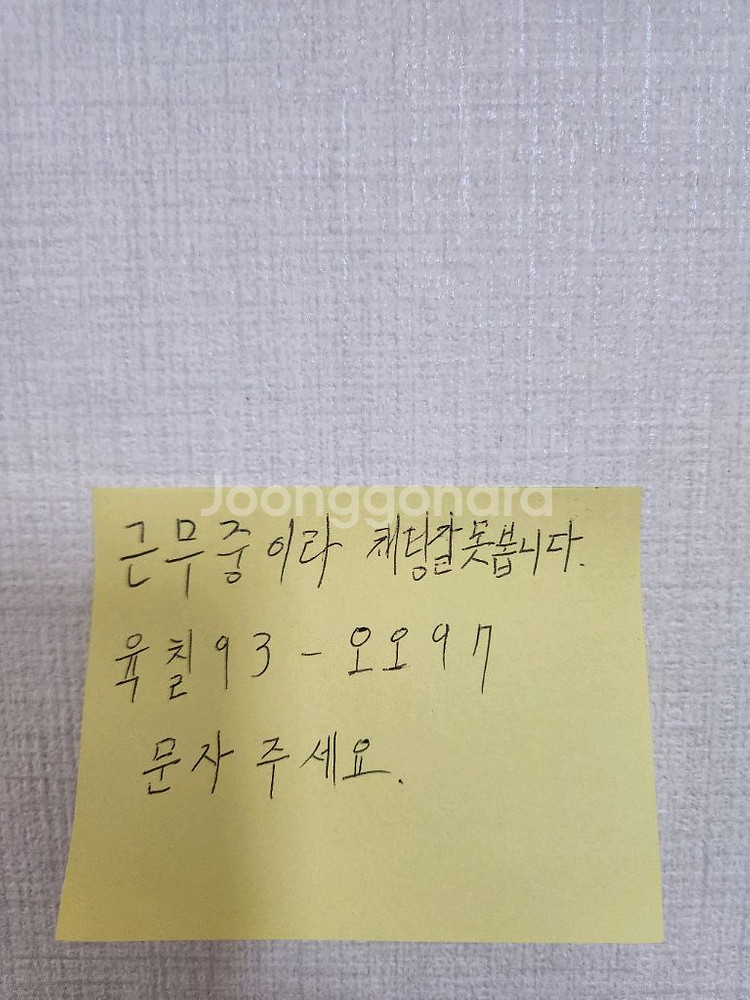 Joonggonara
근무중이라 채팅잘못봅니다.
육칠93-오오97
문자 주세요.